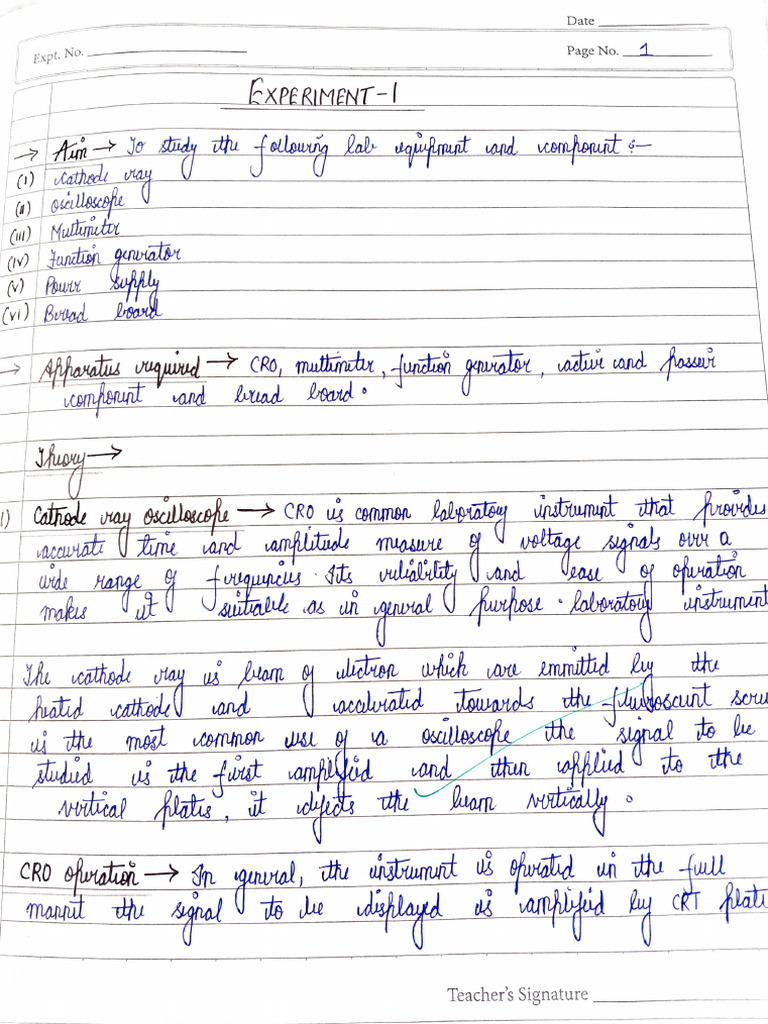 Date
Expt. No.
Page No. 1
EXPERIMENT-1
→ Aim → To study the following lab equipment and component :-
(i) Cathode ray
(ii) oscilloscope
(iii) Multimeter
(iv) Function generator
(v) Power supply
(vi) Bread board
→ Apparatus required → CRO, multimeter, function generator, active and passive
component and bread board.
Theory →
1) Cathode ray oscilloscope → CRO is common laboratory instrument that provides
accurate time and amplitude measure of voltage signals over a
wide range of frequencies. Its reliability and ease of operation
makes it suitable as in general purpose laboratory instrument
The cathode ray is beam of electron which are emmitted by the
heated cathode and accelerated towards the
is the most common use of a oscilloscope the signal to be
studied is the first amplified and then applied to the
vertical plates, it deflects the beam vertically.
CRO operation → In general, the instrument is operated in the full
the signal to be displayed is amplified by CRT plate
Teacher's Signature